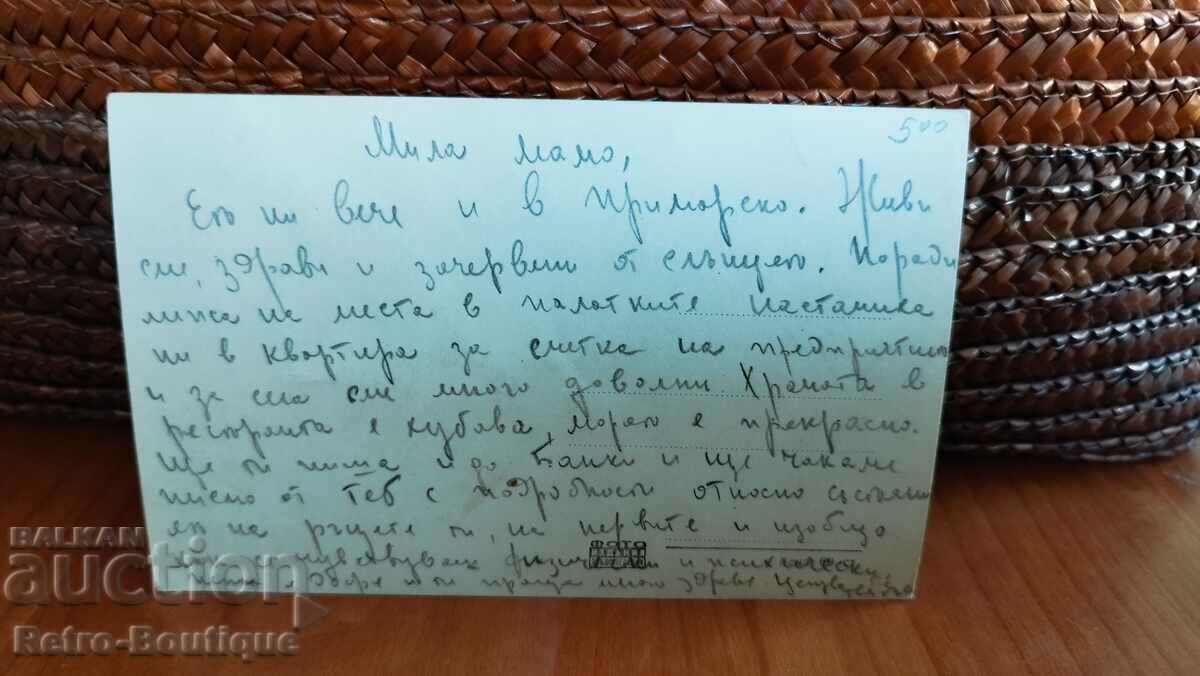 500
Мила мамо,
Ето ни вече и в Приморско. Живи
сме, здрави и зачервени от слънцето. Поради
липса на места в палатките настаниха
ни в квартира за сметка на предприятието
и за сега сме много доволни. Храната в
ресторанта е хубава, морето е прекрасно.
Ще ти пиша и до Банки и ще чакаме
писмо от Теб с подробности относно състояни
ето на ръцете ти, на нервите и изобщо
как се чувствуваш физически и психически,
е добре и ти праща много здраве
BALKAN
auction
Retro-Boutique